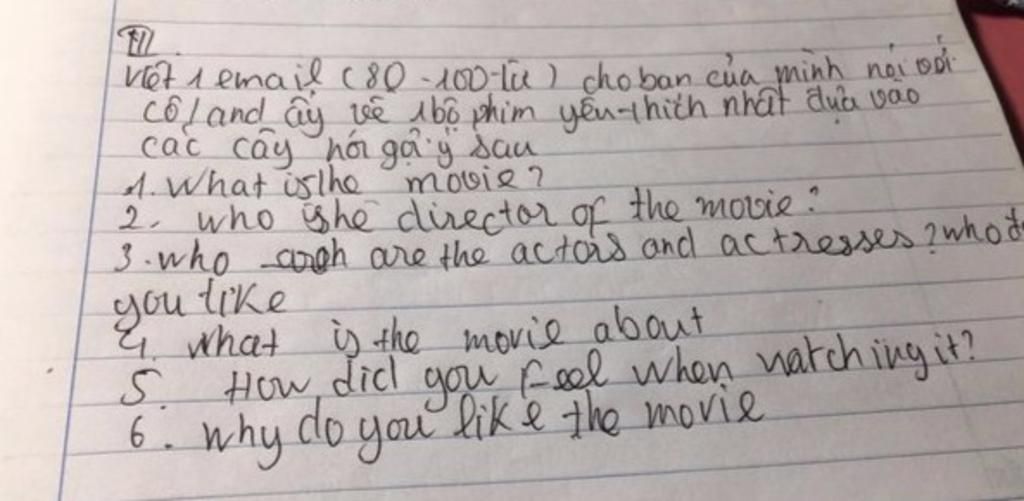 III.
Viết 1 email (80 - 100 từ) cho bạn của mình nói với
cô/and ấy về 1 bộ phim yêu thích nhất dựa vào
các cây hói gậ ý sau
1. What is the movie?
2. who is the director of the movie?
3. who are the actors and actresses? who do
you like
4. what is the movie about
5. How did you feel when watching it?
6. why do you like the movie